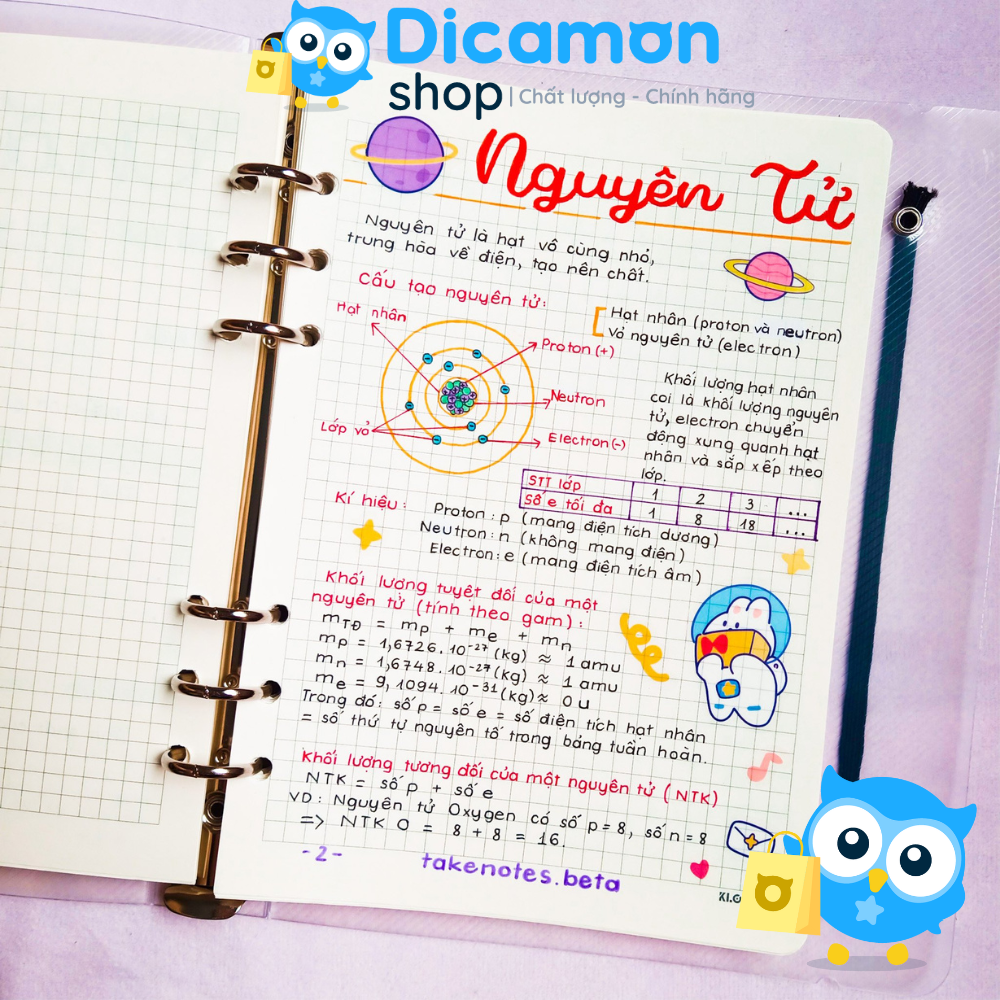 Dicamon
shop | Chất lượng - Chính hãng
Nguyên Tử
Nguyên tử là hạt vô cùng nhỏ,
trung hòa về điện, tạo nên chất.
Cấu tạo nguyên tử:
Hạt nhân (proton và neutron)
Vỏ nguyên tử (electron)
Hạt nhân
Proton (+)
Neutron
Lớp vỏ
Electron (-)
Khối lượng hạt nhân
coi là khối lượng nguyên
tử, electron chuyển
động xung quanh hạt
nhân và sắp xếp theo
lớp.
STT lớp 1 2 3 ...
Số e tối đa 1 8 18 ...
Kí hiệu: Proton: p (mang điện tích dương)
Neutron: n (không mang điện)
Electron: e (mang điện tích âm)
Khối lượng tuyệt đối của một
nguyên tử (tính theo gam):
mTĐ = mp + me + mn
mp = 1,6726.10⁻²⁷ (kg) ≈ 1 amu
mn = 1,6748.10⁻²⁷ (kg) ≈ 1 amu
me = 9,1094.10⁻³¹ (kg) ≈ 0 u
Trong đó: số p = số e = số điện tích hạt nhân
= số thứ tự nguyên tố trong bảng tuần hoàn.
Khối lượng tương đối của một nguyên tử (NTK)
NTK = số p + số e
VD: Nguyên tử Oxygen có số p = 8, số n = 8
=> NTK O = 8 + 8 = 16.
-2-
takenotes.beta